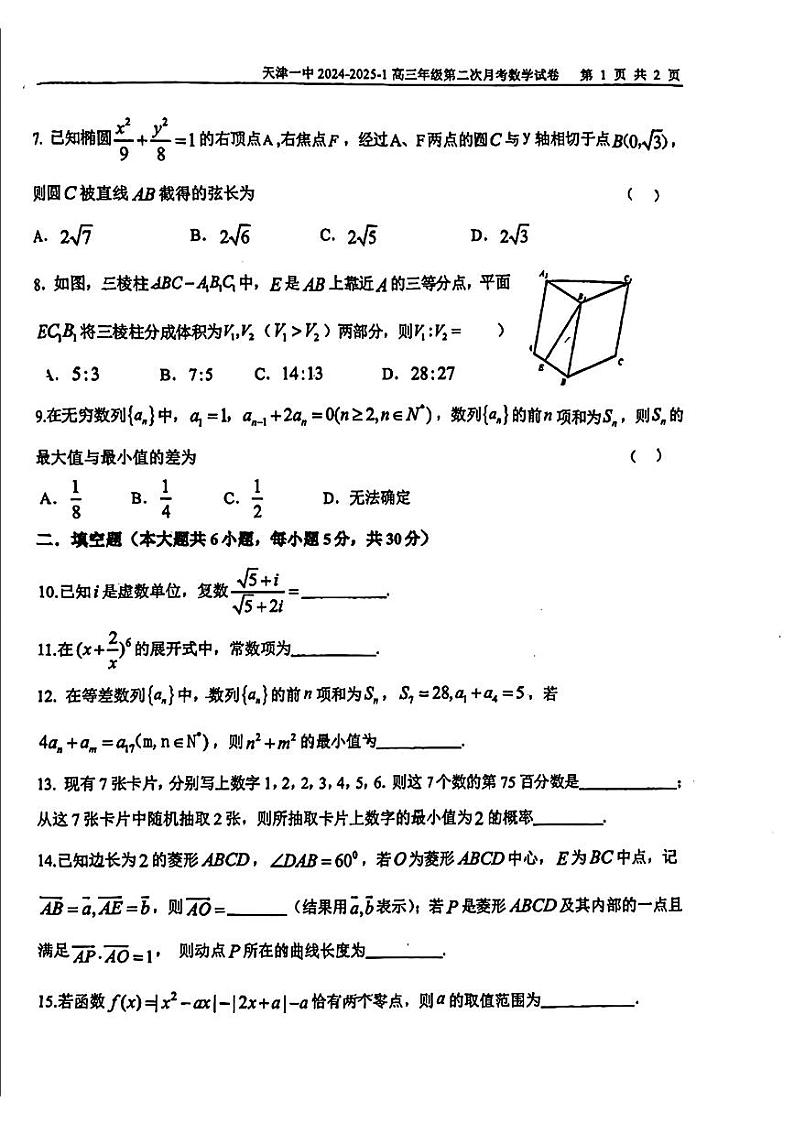 天津一中 2024-2025-1 高三年级第二次月考数学试卷 第 1 页 共 2 页
7. 已知椭圆 x²/9 + y²/8 = 1 的右顶点A ,右焦点F ，经过A、F两点的圆C与 y 轴相切于点B(0,√3)，
则圆C被直线 AB 截得的弦长为 （ ）
A. 2√7 B. 2√6 C. 2√5 D. 2√3
8. 如图，三棱柱 ABC-A₁B₁C₁ 中，E 是 AB 上靠近 A 的三等分点，平面
A₁ C₁ B₁
EC₁B₁ 将三棱柱分成体积为V₁,V₂（V₁ > V₂）两部分，则V₁:V₂ = ）
A E B C
A. 5:3 B. 7:5 C. 14:13 D. 28:27
9.在无穷数列{aₙ}中，a₁ = 1，aₙ₋₁ + 2aₙ = 0(n ≥ 2, n ∈ N*)，数列{aₙ}的前n 项和为Sₙ，则Sₙ的
最大值与最小值的差为 （ ）
A. 1/8 B. 1/4 C. 1/2 D. 无法确定
二．填空题（本大题共 6 小题，每小题 5 分，共 30 分）
10.已知 i 是虚数单位，复数 (√5+i)/(√5+2i) = ________.
11.在 (x+2/x)⁶ 的展开式中，常数项为________.
12. 在等差数列{aₙ}中，数列{aₙ}的前 n 项和为 Sₙ，S₇ = 28, a₁ + a₄ = 5，若
4aₙ + aₘ = a₁₇(m, n ∈ N*)，则 n² + m² 的最小值为________.
13. 现有 7 张卡片，分别写上数字 1, 2, 2, 3, 4, 5, 6. 则这 7 个数的第 75 百分数是________；
从这 7 张卡片中随机抽取 2 张，则所抽取卡片上数字的最小值为 2 的概率________.
14.已知边长为 2 的菱形 ABCD，∠DAB = 60⁰，若 O 为菱形 ABCD 中心，E 为 BC 中点，记
AB = a, AE = b，则 AO = ________（结果用 a,b 表示)；若 P 是菱形 ABCD 及其内部的一点且
满足 AP·AO = 1， 则动点 P 所在的曲线长度为________.
15.若函数 f(x) =| x² - ax | - | 2x + a | -a 恰有两个零点，则 a 的取值范围为________.